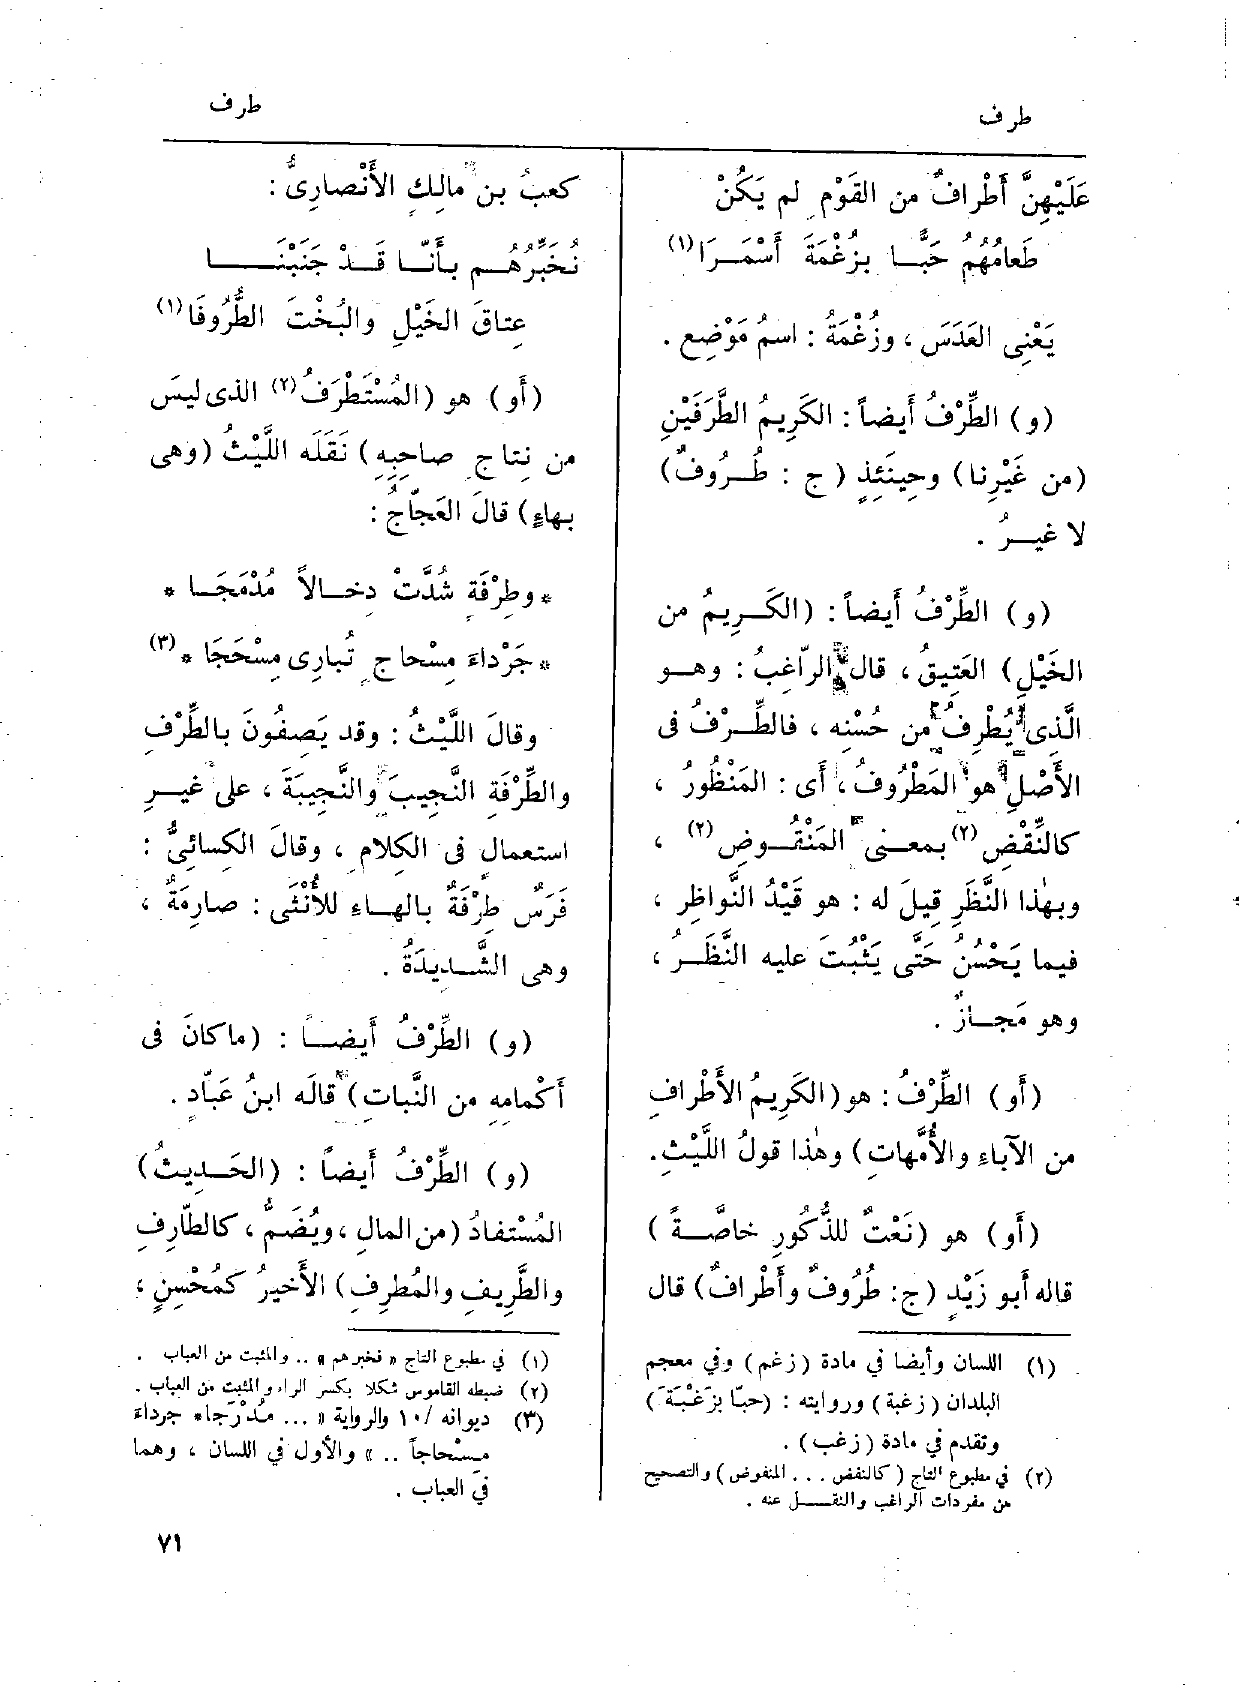 طرف
طرف
عَلَيْهِنَّ أَطْرافٌ من القَوْمِ لم يَكُنْ
طَعامُهُمُ حَبًّــا بِزُغْمَةَ أَسْمَــرَا (١)
يَعْنِى العَدَسَ ، وزُغْمَةُ : اسمُ مَوْضِعٍ .
(و) الطِّرْفُ أَيضاً : الكَرِيمُ الطَّرَفَيْنِ
(من غَيْرِنا) وحِينَئِذٍ ( ج : طُــرُوفٌ)
لا غيــرُ .
(و) الطِّرْفُ أَيضاً : (الكَــرِيمُ من
الخَيْلِ) العَتِيقُ ، قال الرّاغِبُ : وهــو
الَّذى يُطْرِفُ من حُسْنِه ، فالطِّــرْفُ فى
الأَصْلِ هو المَطْرُوفُ ، أى : المَنْظُورُ ،
كالنِّقْضِ (٢) بمعــنى المَنْقُــوضِ (٢) ،
وبهٰذا النَّظَرِ قِيلَ له : هو قَيْدُ النَّواظِرِ ،
فيما يَحْسُنُ حَتَّى يَثْبُتَ عليه النَّظَــرُ ،
وهو مَجــازٌ .
(أو) الطِّرْفُ : هو (الكَرِيمُ الأَطْرافِ
من الآباءِ والأُمَّهاتِ) وهٰذا قولُ اللَّيْثِ .
(أو) هو (نَعْتٌ للذُّكُورِ خاصَّــةً )
قاله أبو زَيْدٍ (ج: طُرُوفٌ وأَطْرافٌ) قال
(١) اللسان وأيضا في مادة (زغم) وفي معجم
البلدان (زغبة) وروايته : (حبًّا بِزَغْبَةَ)
وتقدم في مادة (زغب) .
(٢) في مطبوع التاج (كالنفض . . . المنفوض) والتصحيح
من مفردات الراغب والنقــل عنه .
كعبُ بن مالِكٍ الأَنْصارِىُّ :
نُخَبِّرُهُــم بأَنَّــا قَــدْ جَنَبْنَــــا
عِتاقَ الخَيْلِ والبُخْتَ الطُّرُوفَا (١)
(أو) هو (المُسْتَطْرَفُ (٢) الذى ليسَ
من نِتاجِ صاحِبِه) نَقَلَه اللَّيْثُ (وهى
بهاءٍ) قالَ العَجّاجُ :
* وطِرْفَةٍ شُدَّتْ دِخــالاً مُدْمَجَــا *
* جَرْداءَ مِسْحاجٍ تُبارِى مِسْحَجَا * (٣)
وقالَ اللَّيْثُ : وقد يَصِفُونَ بالطِّرْفِ
والطِّرْفَةِ النَّجِيبَ والنَّجِيبَةَ ، على غيــرِ
استعمالٍ فى الكلامِ ، وقالَ الكسائىُّ :
فَرَسٌ طِرْفَةٌ بالهــاءِ للأُنْثَى : صارِمَةٌ ،
وهى الشَّــدِيدَةُ .
(و) الطِّرْفُ أَيضــاً : (ما كانَ فى
أَكْمامِهِ من النَّباتِ) قالَه ابنُ عَبّادٍ .
(و) الطِّرْفُ أَيضاً : (الحَــدِيثُ)
المُسْتَفادُ (من المالِ ، ويُضَمُّ ، كالطّارِفِ
والطَّرِيفِ والمُطرِفِ) الأَخيرُ كَمُحْسِنٍ ،
(١) في مطبوع التاج « نخبرهم » .. والمثبت من العباب .
(٢) ضبطه القاموس شكلا بكسر الراء والمثبت من العباب .
(٣) ديوانه /١٠ والرواية « ... مُدْرَجا * جرداءَ
مِسْحاجاً .. » والأول في اللسان ، وهما
في العباب .
٧١